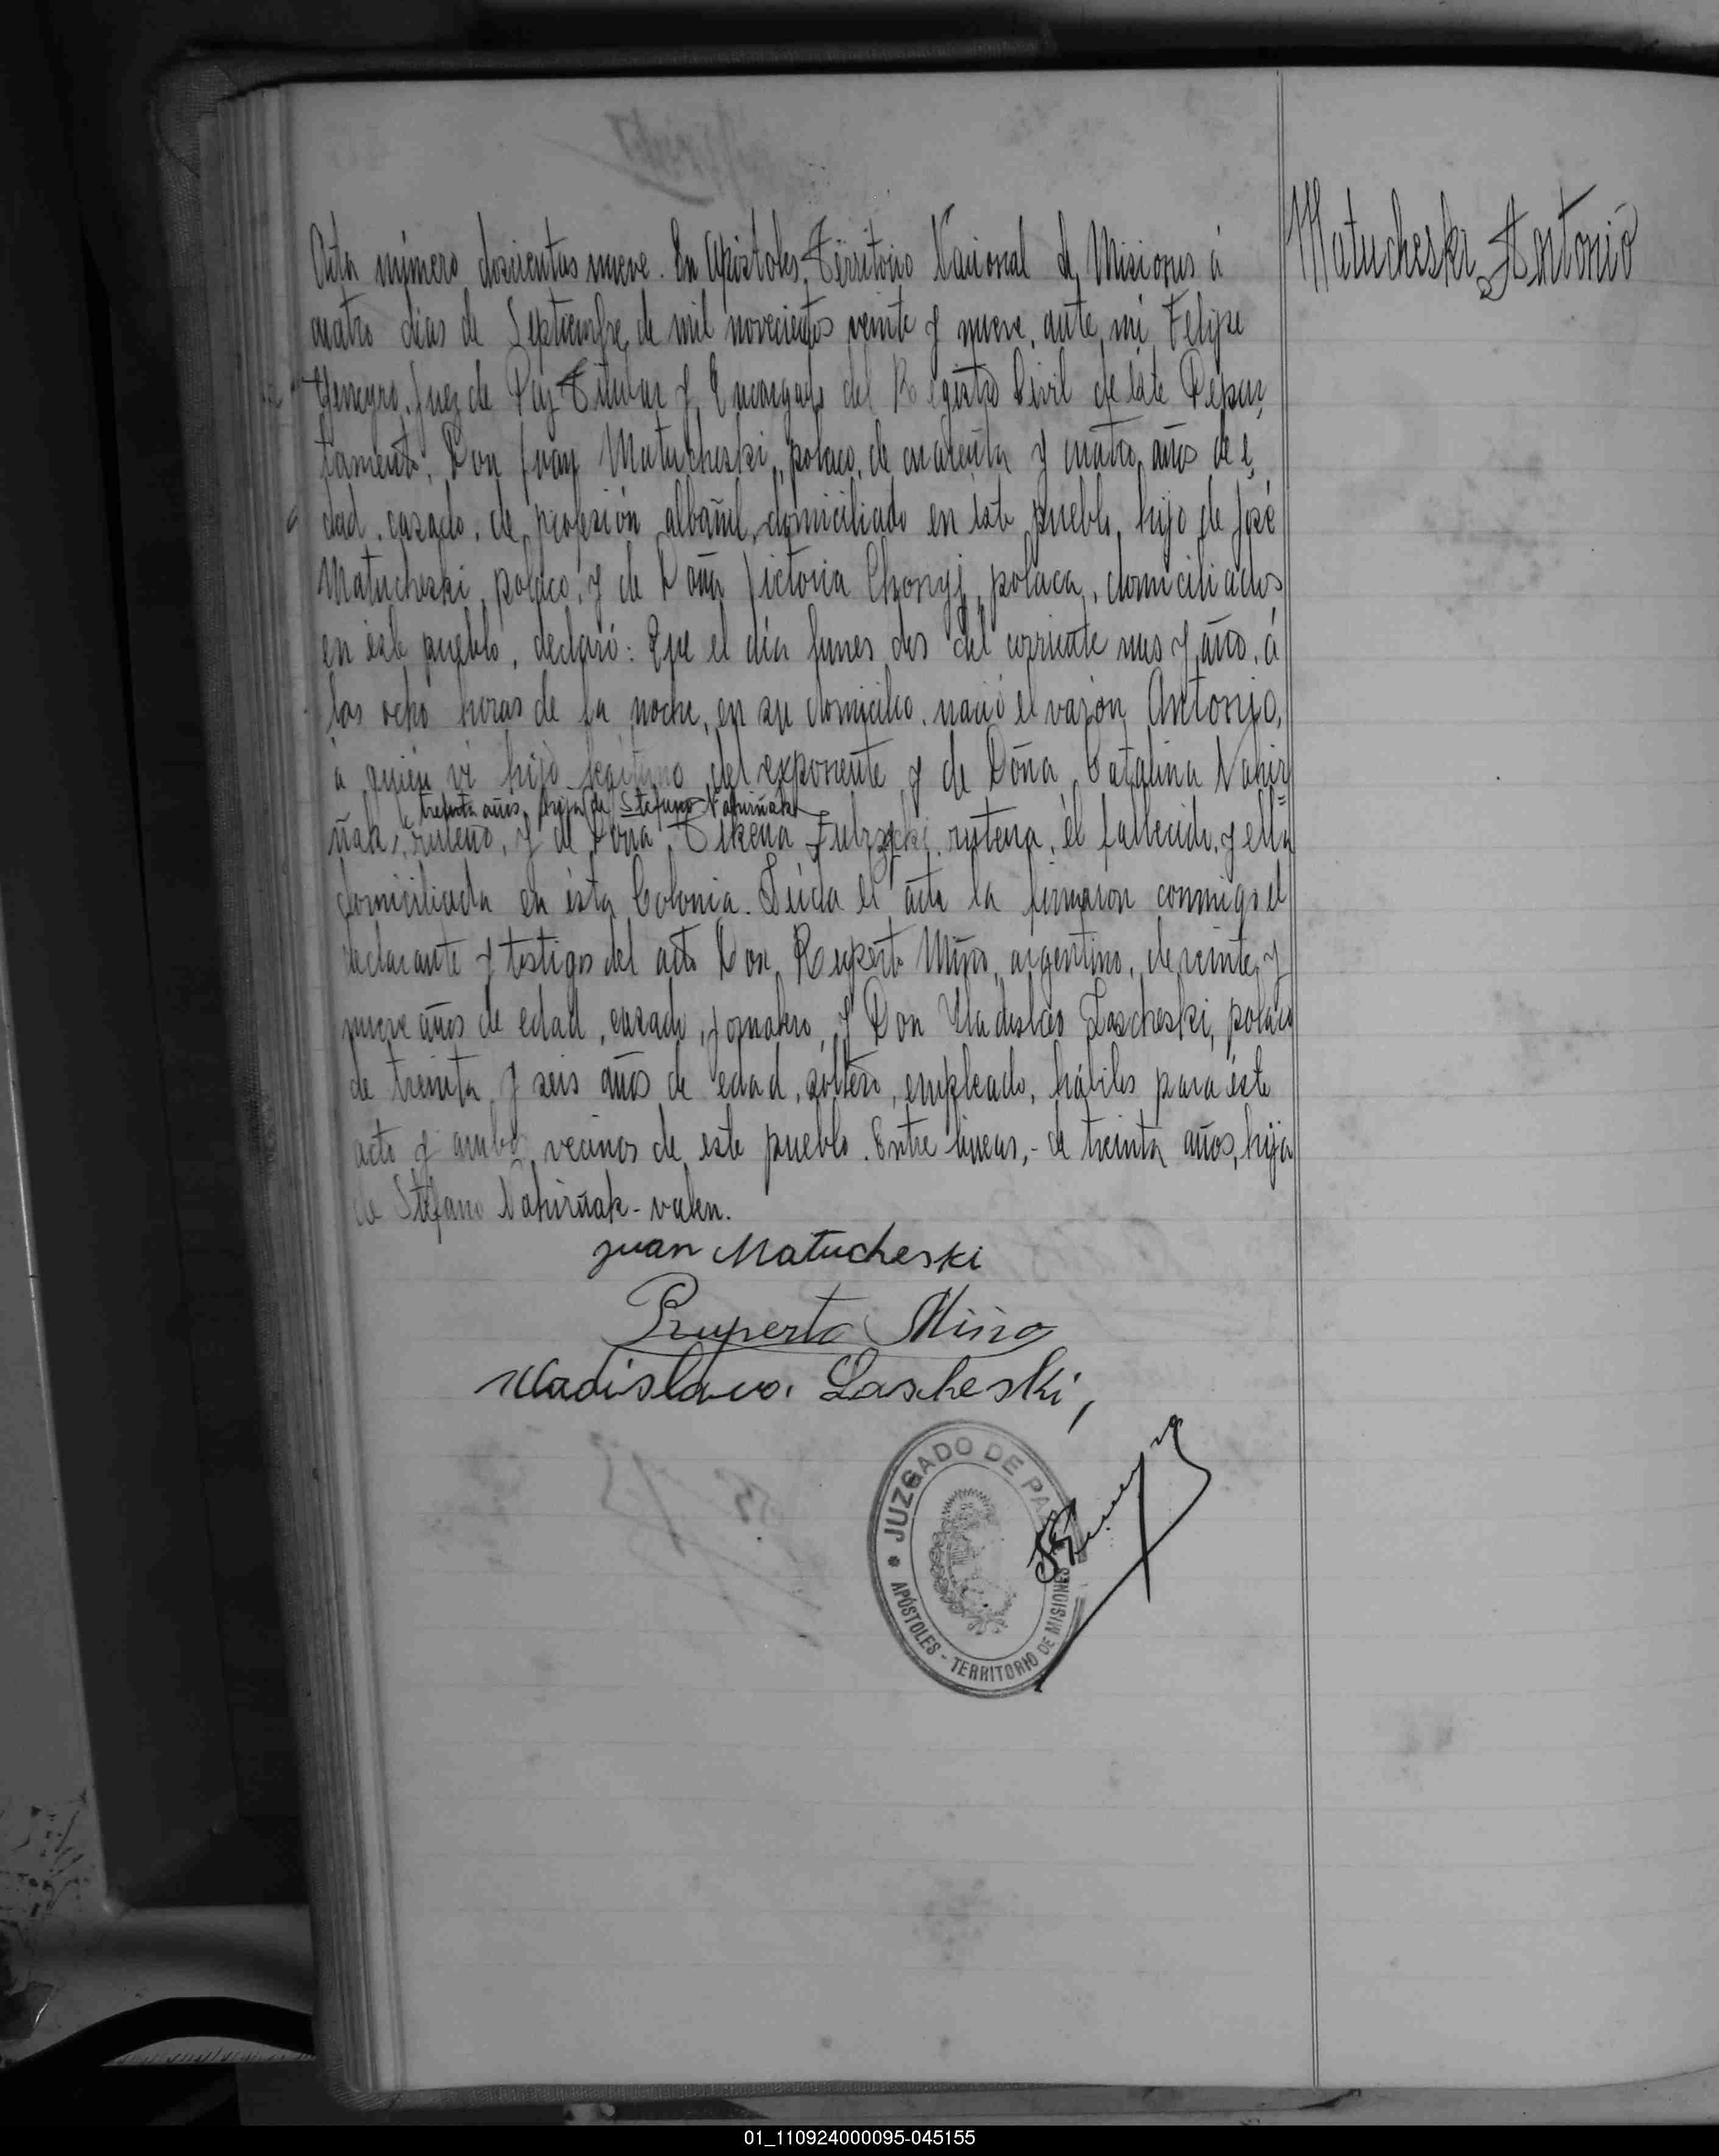 Matucheski Antonio
Acta número doscientos nueve. En Apóstoles, Territorio Nacional de Misiones á
cuatro días de Septiembre de mil novecientos veinte y nueve, ante mí Felipe
Juez de Paz Titular y Encargado del Registro Civil de éste Depar
tamento, Don Juan Matucheski, polaco, de cuarenta y cuatro años de e
dad, casado, de profesión albañil, domiciliado en éste pueblo, hijo de José
Matucheski, polaco, y de Doña Victoria polaca, domiciliados
en éste pueblo, declaró: Que el día lunes dos del corriente mes y año, á
las ocho horas de la noche, en su domicilio, nació el varón Antonio,
á quien ví hijo legítimo del exponente y de Doña Catalina Nahir
de treinta años, hija de Stefano Nahirñak
ñak, ruteno, y de Doña rutena, él fallecido, y ella
domiciliada en ésta Colonia. Leída el acta la firmaron conmigo el
declarante y testigos del acto Don Ruperto Miño, argentino, de veinte y
nueve años de edad, casado, jornalero, y Don Uladislao Lascheski, polaco
de treinta y seis años de edad, soltero, empleado, hábiles para éste
acto y ambos vecinos de este pueblo. Entre lineas,- de treinta años, hija
de Stefano Nahirñak - valen.
Juan Matucheski
Ruperto Miño
Uladislavo. Lascheski,
JUZGADO DE PAZ
APÓSTOLES - TERRITORIO DE MISIONES
01_110924000095-045155